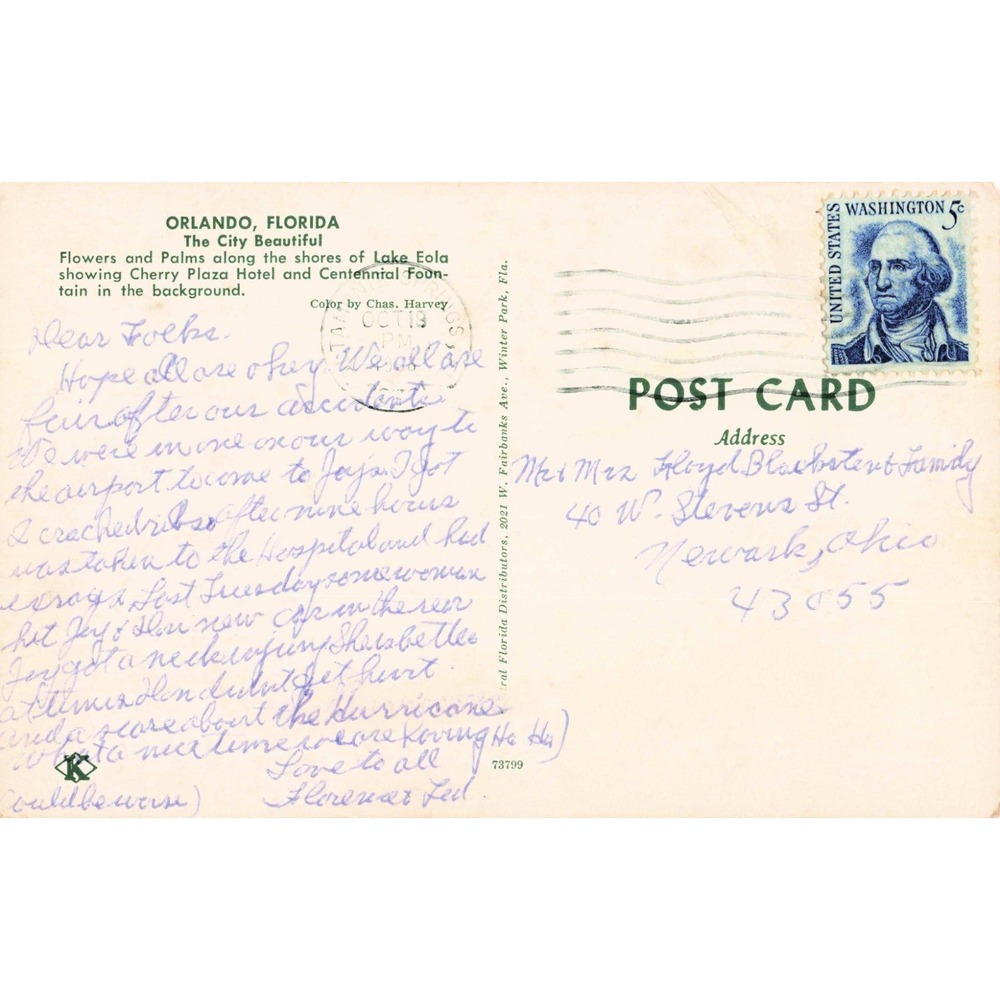 ORLANDO, FLORIDA
The City Beautiful
Flowers and Palms along the shores of Lake Eola
showing Cherry Plaza Hotel and Centennial Foun-
tain in the background.
Color by Chas. Harvey
Dear Folks.
Hope all are okey We all are
fair after our accidents
We were in one on our way to
the airport to come to Jays. I got
2 cracked ribs after nine hours
was taken to the Hospital and had
exrays Last Tuesday some woman
hit Jay & new car in the rear
Jay got a neck injury She is better
at times didnt get hurt
and a scare about the Hurricane
What a nice time we are having Ha Ha)
Could be worse)
Love to all
Florence & Ted.
K
ral Florida Distributors, 2021 W. Fairbanks Ave., Winter Park, Fla.
73799
SPRINGS
OCT 19
PM
UNITED STATES
WASHINGTON 5c
POST CARD
Address
Mr & Mrs Floyd & Family
40 W. Stevens St.
Newark, Ohio
43055